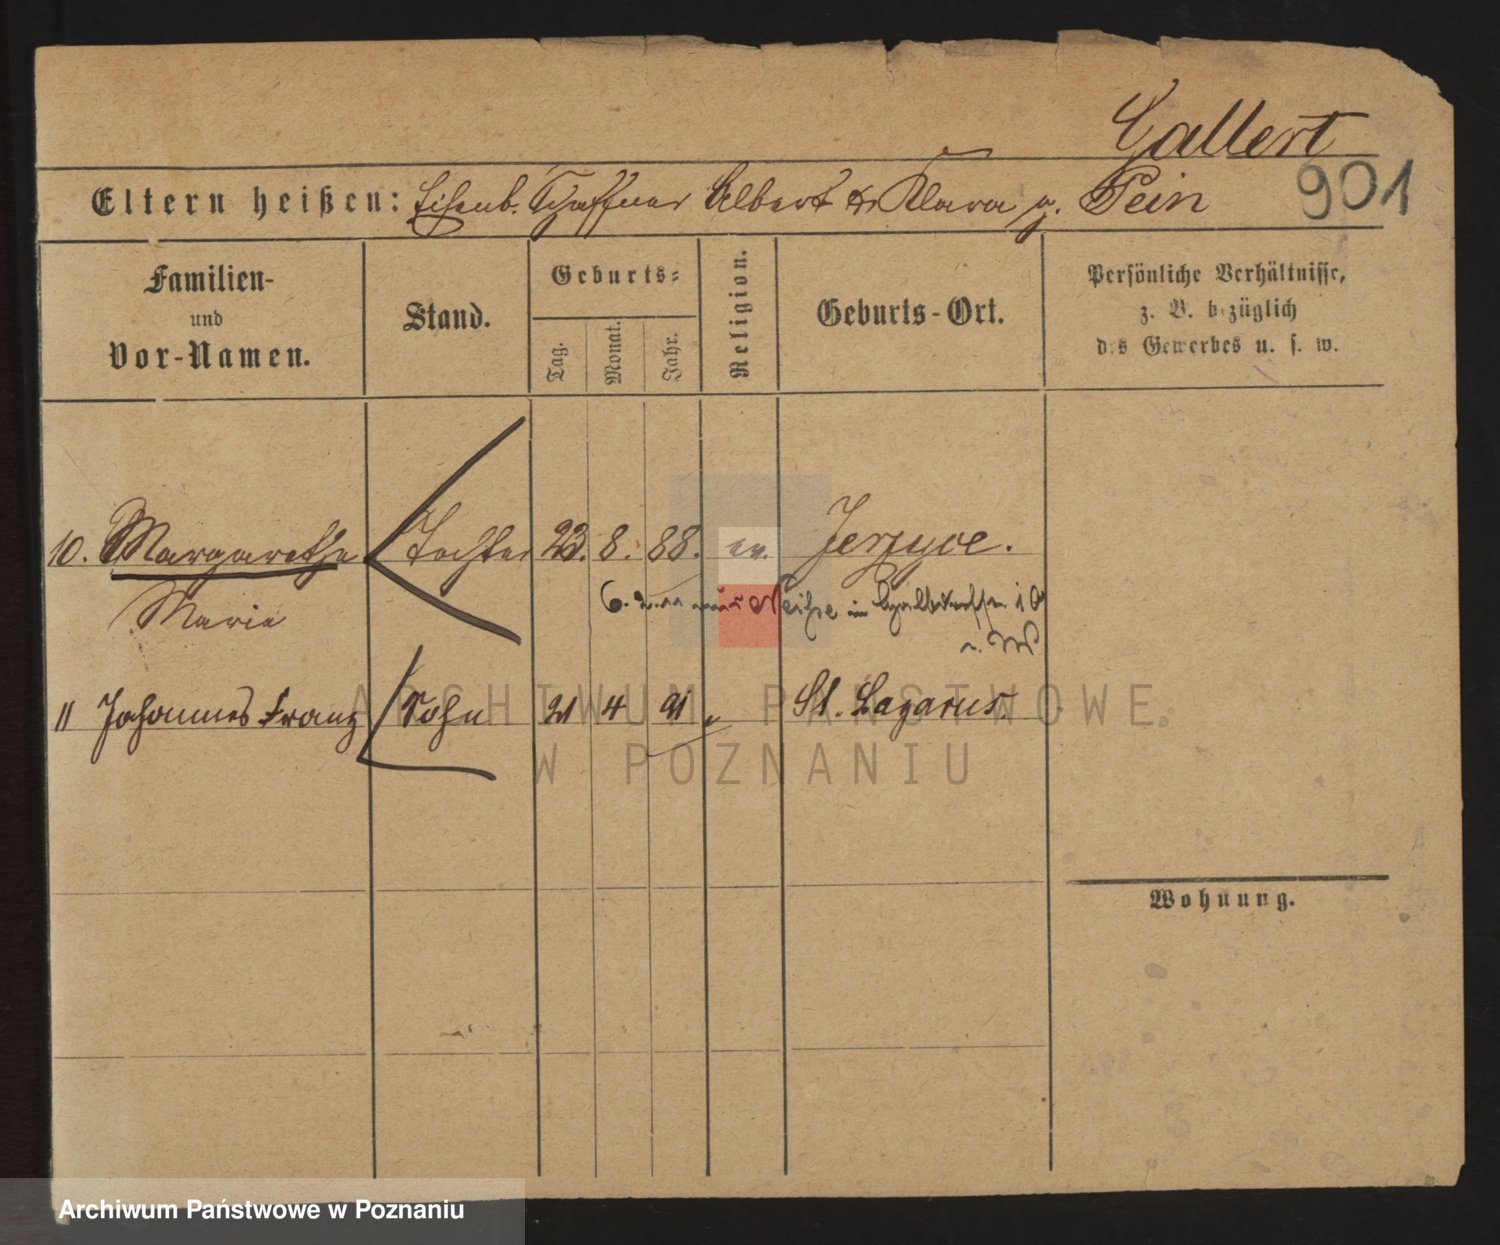 Gallert
Eltern heißen: Eisenb. Schaffner Albert & Klara g. Pein
901
Familien-
und
Vor-Namen.
Stand.
Geburts-
Tag.
Monat.
Jahr.
Religion.
Geburts-Ort.
Persönliche Verhältnisse,
z. B. bezüglich
des Gewerbes u. s. w.
10. Margarethe Tochter 23. 8. 88. ev. Jerzyce.
Marie
6. 2. 11 Neiße im
11 Johannes Franz Sohn 21 4 91 " St. Lazarus.
ARCHIWUM PAŃSTWOWE
W POZNANIU
Wohnung.
Archiwum Państwowe w Poznaniu